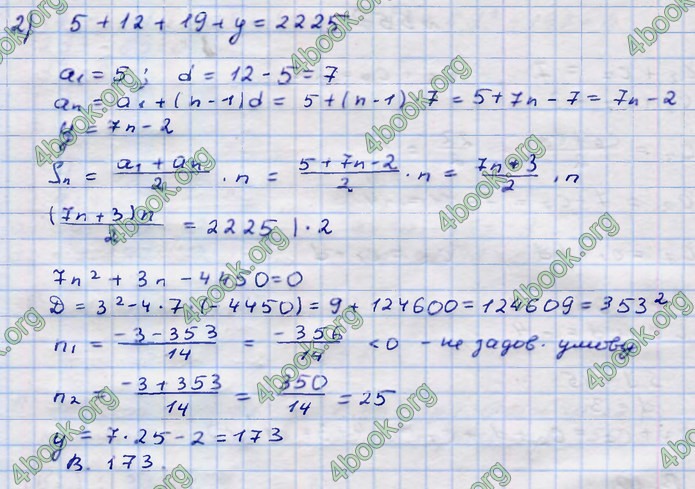 2) 5 + 12 + 19 + y = 2225
a₁ = 5; d = 12 - 5 = 7
aₙ = a₁ + (n - 1)d = 5 + (n - 1) 7 = 5 + 7n - 7 = 7n - 2
y = 7n - 2
Sₙ = (a₁ + aₙ)/2 · n = (5 + 7n - 2)/2 · n = (7n + 3)/2 · n
((7n + 3)n)/2 = 2225 | · 2
7n² + 3n - 4450 = 0
D = 3² - 4 · 7 · (-4450) = 9 + 124600 = 124609 = 353²
n₁ = (-3 - 353)/14 = (-356)/14 < 0 - не задов. умову
n₂ = (-3 + 353)/14 = 350/14 = 25
y = 7 · 25 - 2 = 173
В. 173.
4book.org